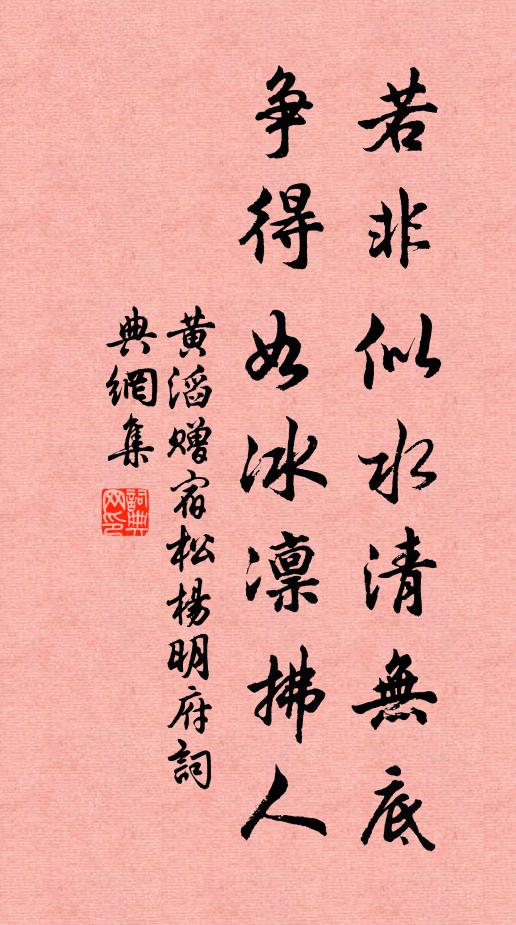 若非似水清無底
争得如冰凛拂人
黄滔赠宿松楊明府詞
典網集
詞典网印